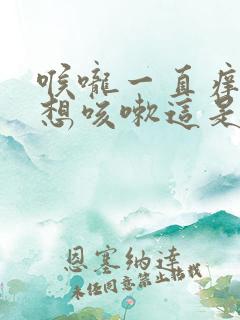 喉嚨一直痒
想咳嗽這是
恩塞納達
未經同意禁止轉載